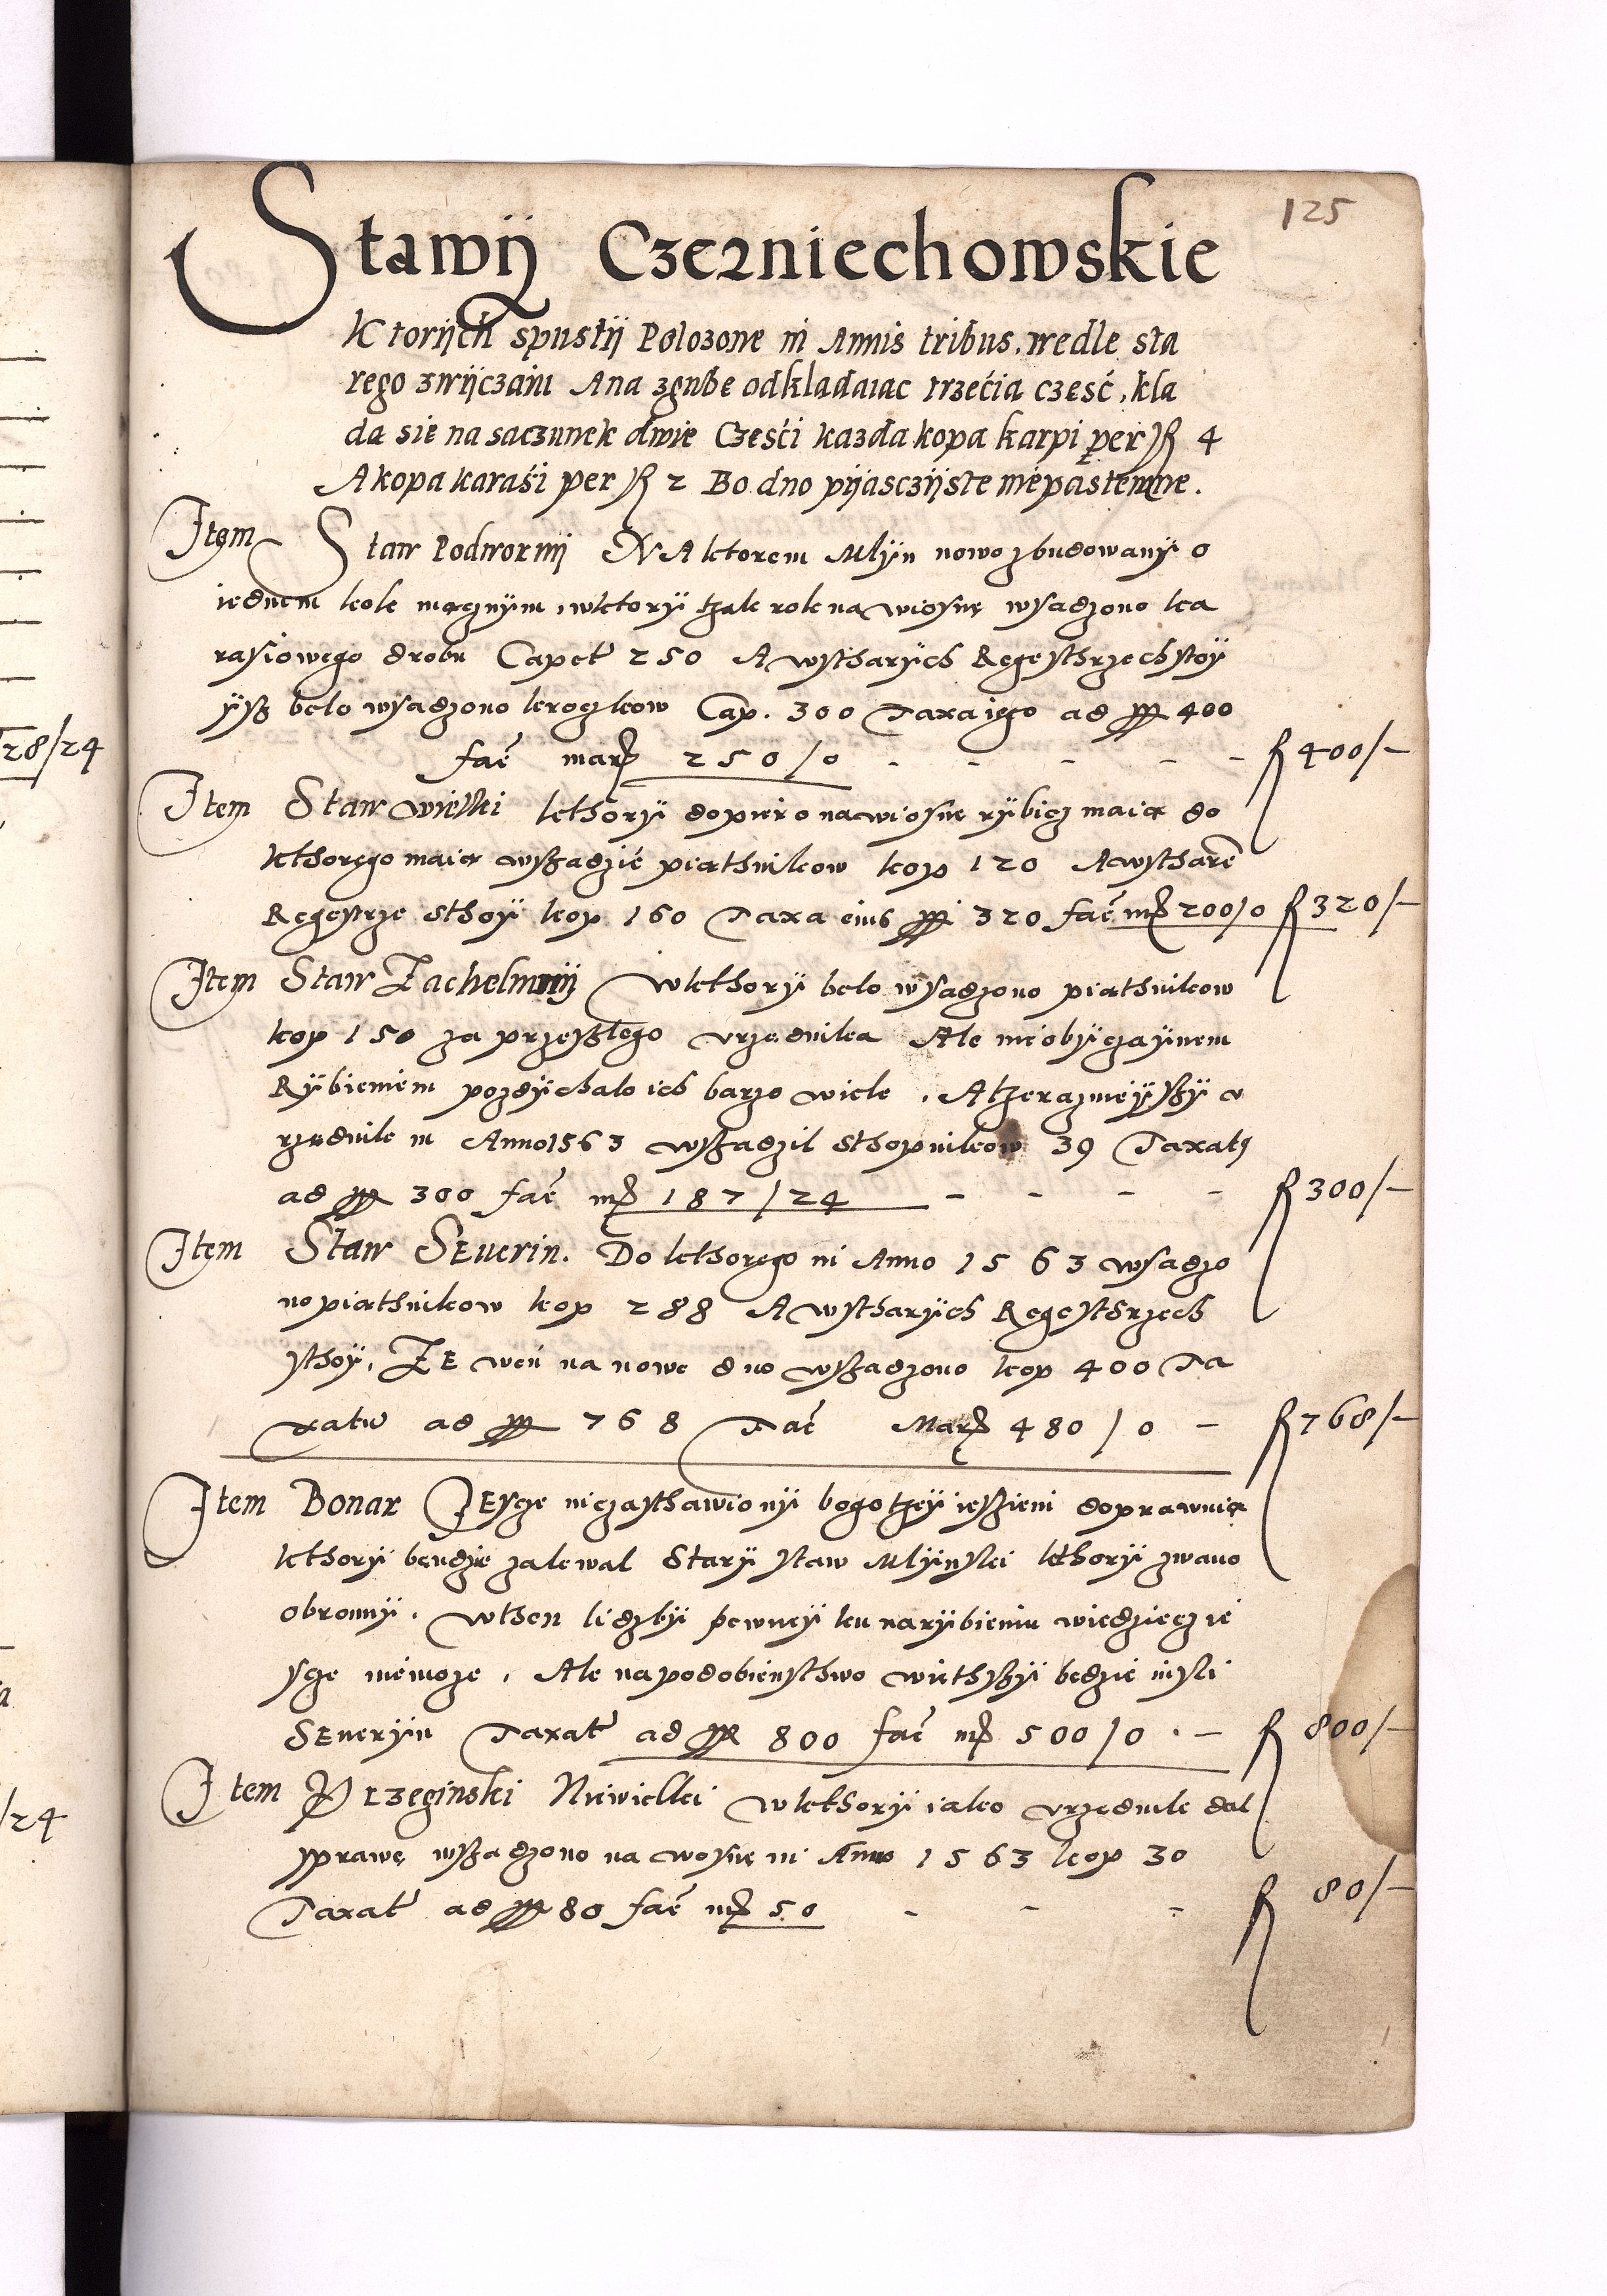 125
Stawÿ Czerniechowskie
Ktorÿch spustÿ Polozone in Annis tribus, wedle sta
rego zwÿczaiu Ana zgube odkladaiac trzećia cześć, kla
da sie na saczunek dwie Cześći kazda kopa karpi per fl 4
A kopa karaśi per fl 2 Bo dno pÿasczÿste niepastewne.
Item Staw Podwornÿ NA ktorem Mlÿn nowo zbudowanÿ o
iednem kole mącznÿm, w ktorÿ tzak rok na wiosnę wsadzono ka
rasiowego drobu Capet 250 A wstharÿch Regesthrzech stoÿ
ÿsz belo wsadzono kroczkow Cap. 300 Taxa iego ad 400
fać mar 250/0 - - - - - fl 400/-
Item Staw wielki kthorÿ dopiero na wiosne rÿbicz maią do
kthorego maią wszadzić piathnikow kop 120 A wstharē
Regestrze sthoÿ kop 160 Taxa eius 320 fać mr 200/0 fl 320/-
Item Staw Zachelmnÿ W kthorÿ belo wsadzono piathnikow
kop 150 za przeszlego vrzednika Ale nieobÿczaÿnem
Rÿbieniem pozdÿchalo ich barzo wiele, A tzerazmieÿszÿ v
rzednik in Anno 1563 wszadzil sthopnikow 39 Taxat
ad 300 fać mr 187/24 - - - - fl 300/-
Item Staw Seuerin. Do kthorego in Anno 1563 wsadzo
no piathnikow kop 288 A wstharÿch Regesthrzech
sthoÿ, ZE weń na nowe dno wszadzono kop 400 Ta
xatur ad 768 Fać Mar 480/0 - fl 768/-
Item Bonar IEscze niezasthawionÿ bo go tzeÿ ieszieni doprawuią
kthorÿ bendzie zalewal Starÿ staw Mlÿnski kthorÿ zwano
obronnÿ. W then liczbÿ pewneÿ ku narÿbieniu wiedziecz ie
scze niemoze, Ale na podobienstwo wiethszÿ bedzie nisli
SEuerÿn Taxat ad 800 fać mr 500/0 - fl 800/-
Item Przeginski Niewielki W kthorÿ iako vrzednik dal
sprawę wszadzono na wiosnę in Anno 1563 kop 30
Taxat ad 80 fać mr 50 - - - fl 80/-
28/24
/24